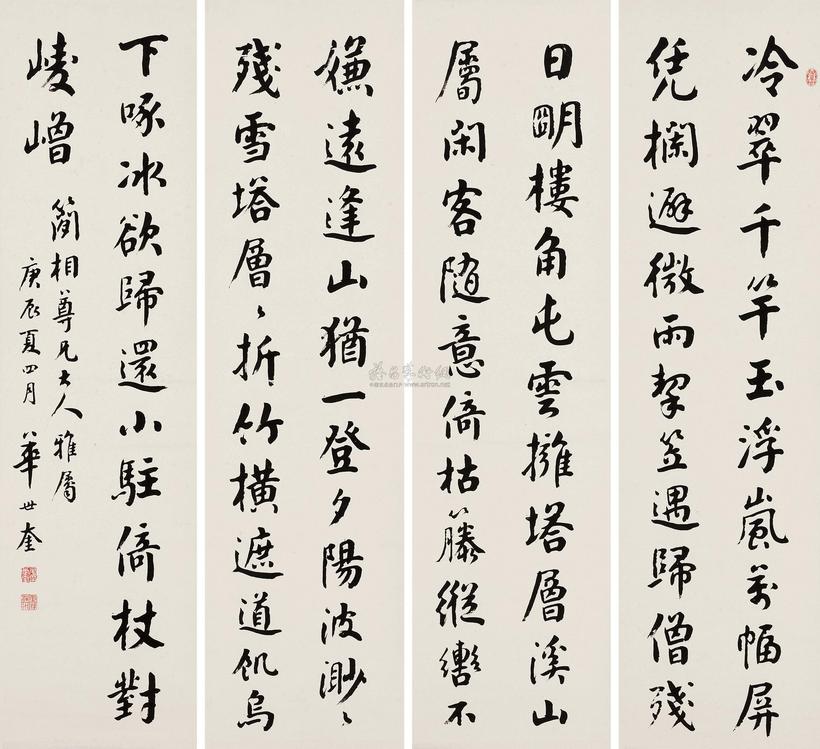 冷翠千竿玉浮嵐万幅屏
凭欄避微雨挈笠遇歸僧殘
日明樓角屯雲擁塔層溪山
屬閑客隨意倚枯籐縱轡不
嫌遠逢山猶一登夕陽波渺〻
殘雪塔層〻折竹橫遮道飢烏
下啄冰欲歸還小駐倚杖對
崚嶒
簡相尊兄大人 雅屬
庚辰夏四月 華世奎